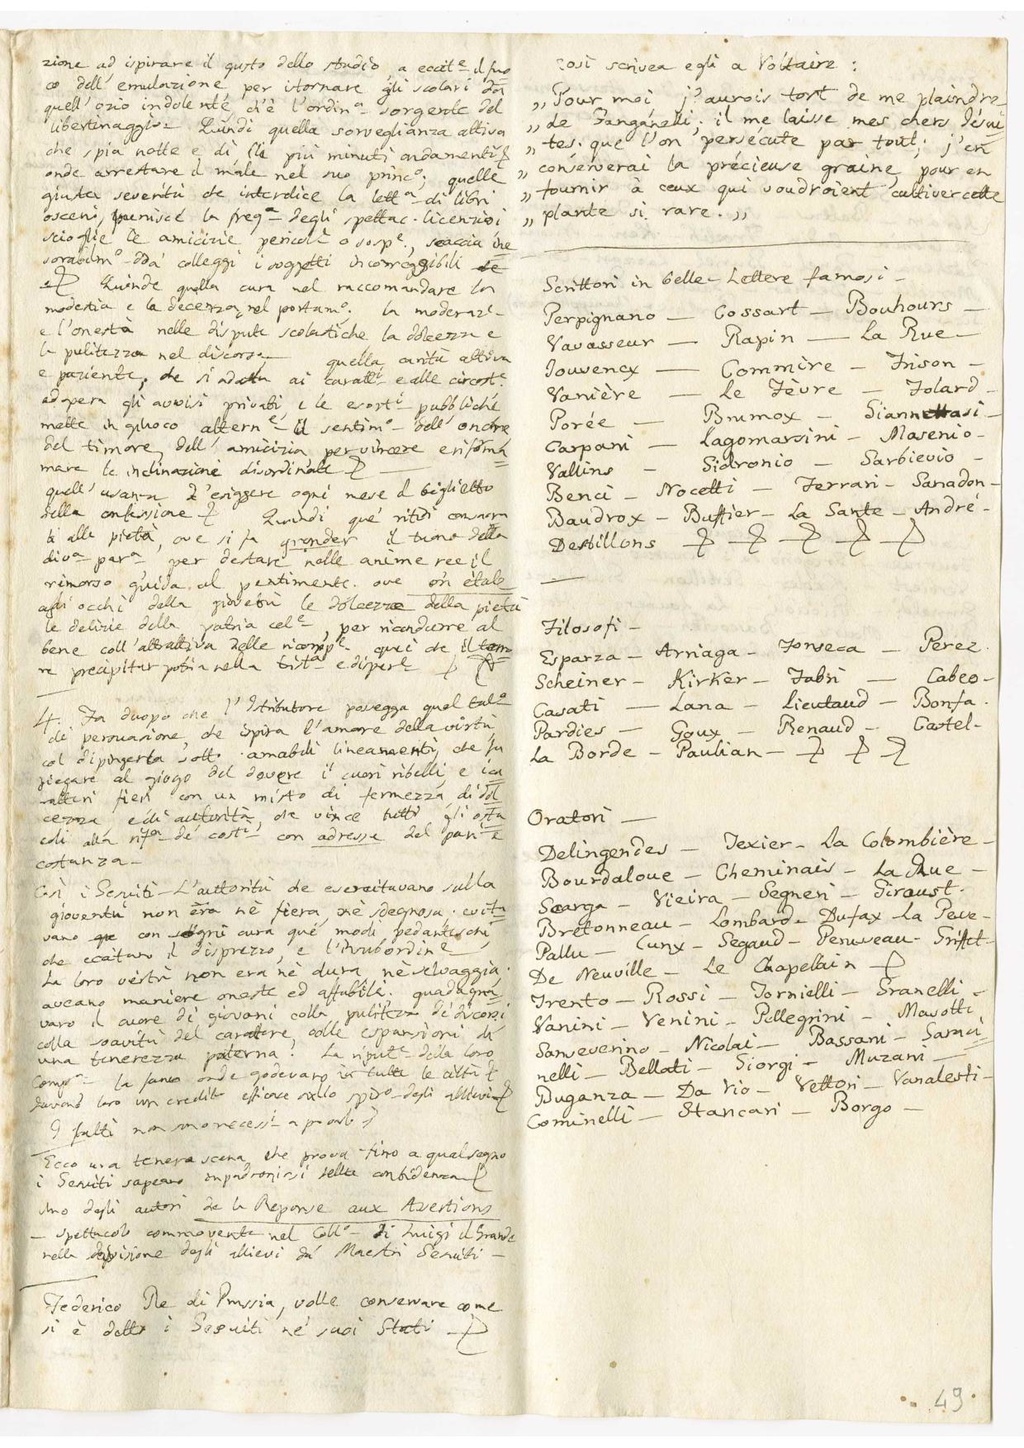 zione ad ispirare il gusto dello studio a eccit.e il fuo
co dell'emulazione, per istornare gli scolari da
quell'ozio indolente, ch'è l'ordin.a sorgente del
libertinaggio. Quindi quella sorveglianza attiva
che spia notte e di li più minuti andamenti
onde arrestare il male nel suo princ.o; quella
giusta severità che interdice la lett.a di libri
osceni, punisce la freq.a degli spettac. licenziosi
scioglie le amicizie pericol.e o sosp.e, scaccia ine
sorabilm.e da' colleggi i soggetti incorreggibili
Quinde quella cura nel raccomandare la
modestia e la decenza, nel portam.o la moderaz.e
e l'onestà nelle dispute scolastiche la dolcezza e
la pulitezza nel discorso quella carità attiva
e paziente, che si adatta ai caratt.i e alle circost.e
adopera gli avvisi privati, e le esort.i pubbliche
mette in giuoco altern.e il sentim.o dell'onore
del timore, dell'amicizia per vincere e risfoma=
mare le inclinazione disordinate
quell'usanza d'esiggere ogni mese il biglietto
della confessione Quindi que' ritiri consacra
ti alla pietà, ove si fa gronder il tuono della
div.a par.a per destare nelle anime ree il
rimorso guida al pentimento. ove on étale
agli occhi della gioventù le dolcezze della pietà
le delizie della patria cel.e, per ricondurre al
bene coll'attrattiva delle ricomp.e quei che il timo
re precipitar potria nella trist.a e disper.e
4. Fa duopo che l'Istitutore possegga quel tal.o
di persuasione, che ispira l'amore della virtù
col dipingerla sotto amabili lineamenti, che fa
piegare al giogo del dovere i cuori ribelli e i ca
ratteri fieri con un misto di fermezza di dol
cezza e di autorità, che vince tutti gli osta
coli alla rif.a de' cost.i con adresse del pari e
costanza.
Così i Gesuiti. L'autorità che esercitavano sulla
gioventù non era nè fiera, nè sdegnosa. evita
vano con ogni cura que' modi pedanteschi,
che eccitano il disprezzo, e l'insubordin.e
La loro virtù non era nè dura, nè selvaggia.
aveano maniere oneste ed affabili. guadagna
vano il cuore di giovani colla pulitezza de' discorsi
colla soavità del carattere, colle espansioni di
una tenerezza paterna. La riput.e della loro
Comp.a la fama onde godevano in tutte le città
davano loro un credito efficace sullo spir.o degli allievi
I fatti non sono necess.i a provarlo
Ecco una tenera scena, che prova fino a qual segno
i Gesuiti sapeano impadronirsi della confidenza
Uno degli autori de la Reponse aux Assertions
spettacolo commovente nel Coll.o di Luigi il Grande
nella divisione degli allievi da' Maestri Gesuiti
Federico Re di Prussia, volle conservare come
si è detto i Gesuiti ne' suoi Stati
Così scrivea egli a Voltaire:
„ Pour moi j'aurois tort de me plaindre
„ de Ganganelli; il me laisse mes chers Jésui
„ tes. que l'on persécute par tout; j'en
„ conserverai la précieuse graine, pour en
„ fournir à ceux qui voudroient cultiver cette
„ plante si rare. „
Scrittori in belle Lettere famosi —
Perpignano — Cossart — Bouhours —
Vavasseur — Rapin — La Rue —
Jouvency — Commire — Frison —
Vanière — Le Fèvre — Folard —
Porée — Brumoy — Giannettasi —
Carpani — Lagomarsini — Masenio —
Vallins — Sidronio — Sarbievio —
Benci — Nocetti — Ferrari — Sanadon —
Baudrox — Buffier — La Sante — André —
Desbillons
Filosofi —
Esparza — Arriaga — Fonseca — Perez.
Scheiner — Kirker — Fabri — Cabeo —
Casati — Lana — Lieutaud — Bonfa.
Pardies — Goux — Renaud — Castel —
La Borde — Paulian —
Oratori —
Delingendes — Texier — La Colombière —
Bourdaloue — Cheminais — La Rue —
Scarga — Vieira — Segneri — Giroust.
Bretonneau — Lombard — Dufax — La Pese —
Pallu — Cunx — Segaud — Perusseau — Griffet —
De Neuville — Le Chapellain —
Trento — Rossi — Tornielli — Granelli —
Vanini — Venini — Pellegrini — Masotti
Sanseverino — Nicolai — Bassani — Sagra
nelli — Bellati — Giorgi — Muzani —
Buganza — Da Rio — Vettori — Vanalesti —
Cominelli — Stancari — Borgo —
49